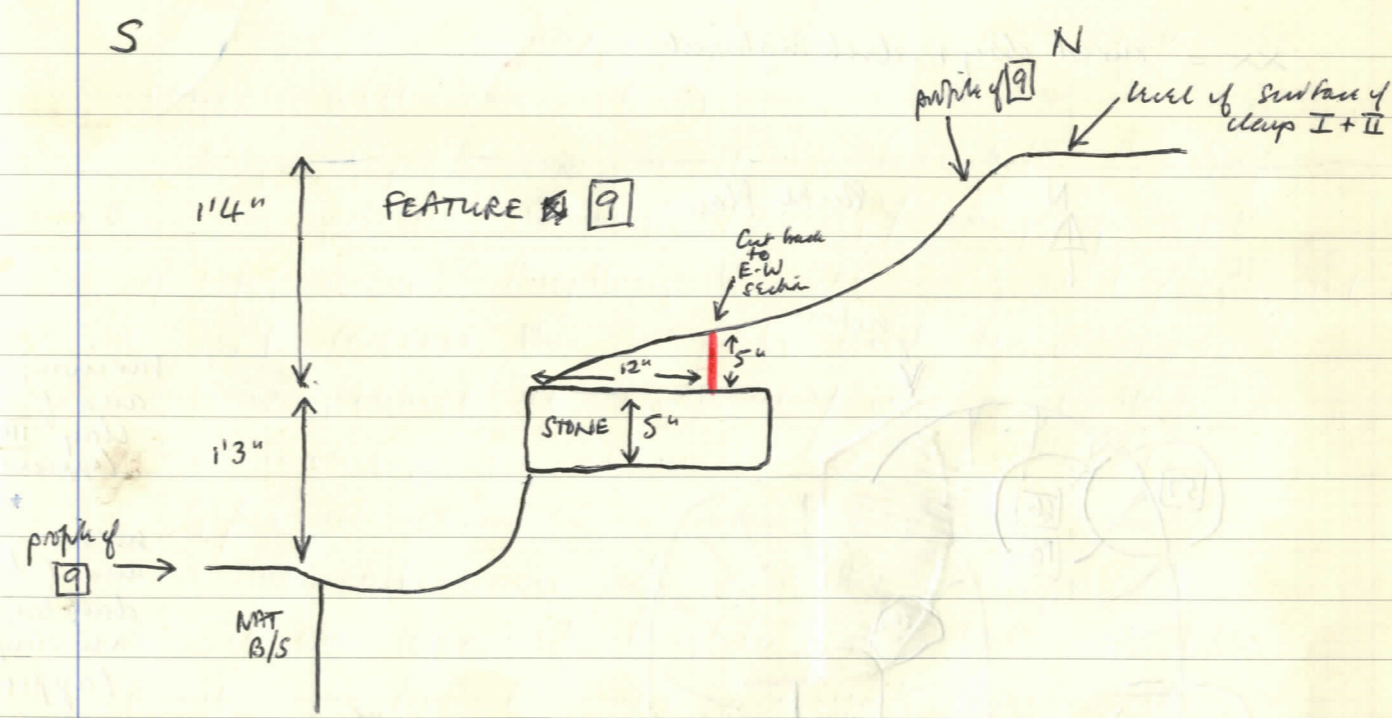 S
N
profile of 9
level of surface of
clays I + II
1'4"
FEATURE 9
Cut back
to
E-W
section
5"
12"
STONE 5"
1'3"
profile of
9
NAT
B/S